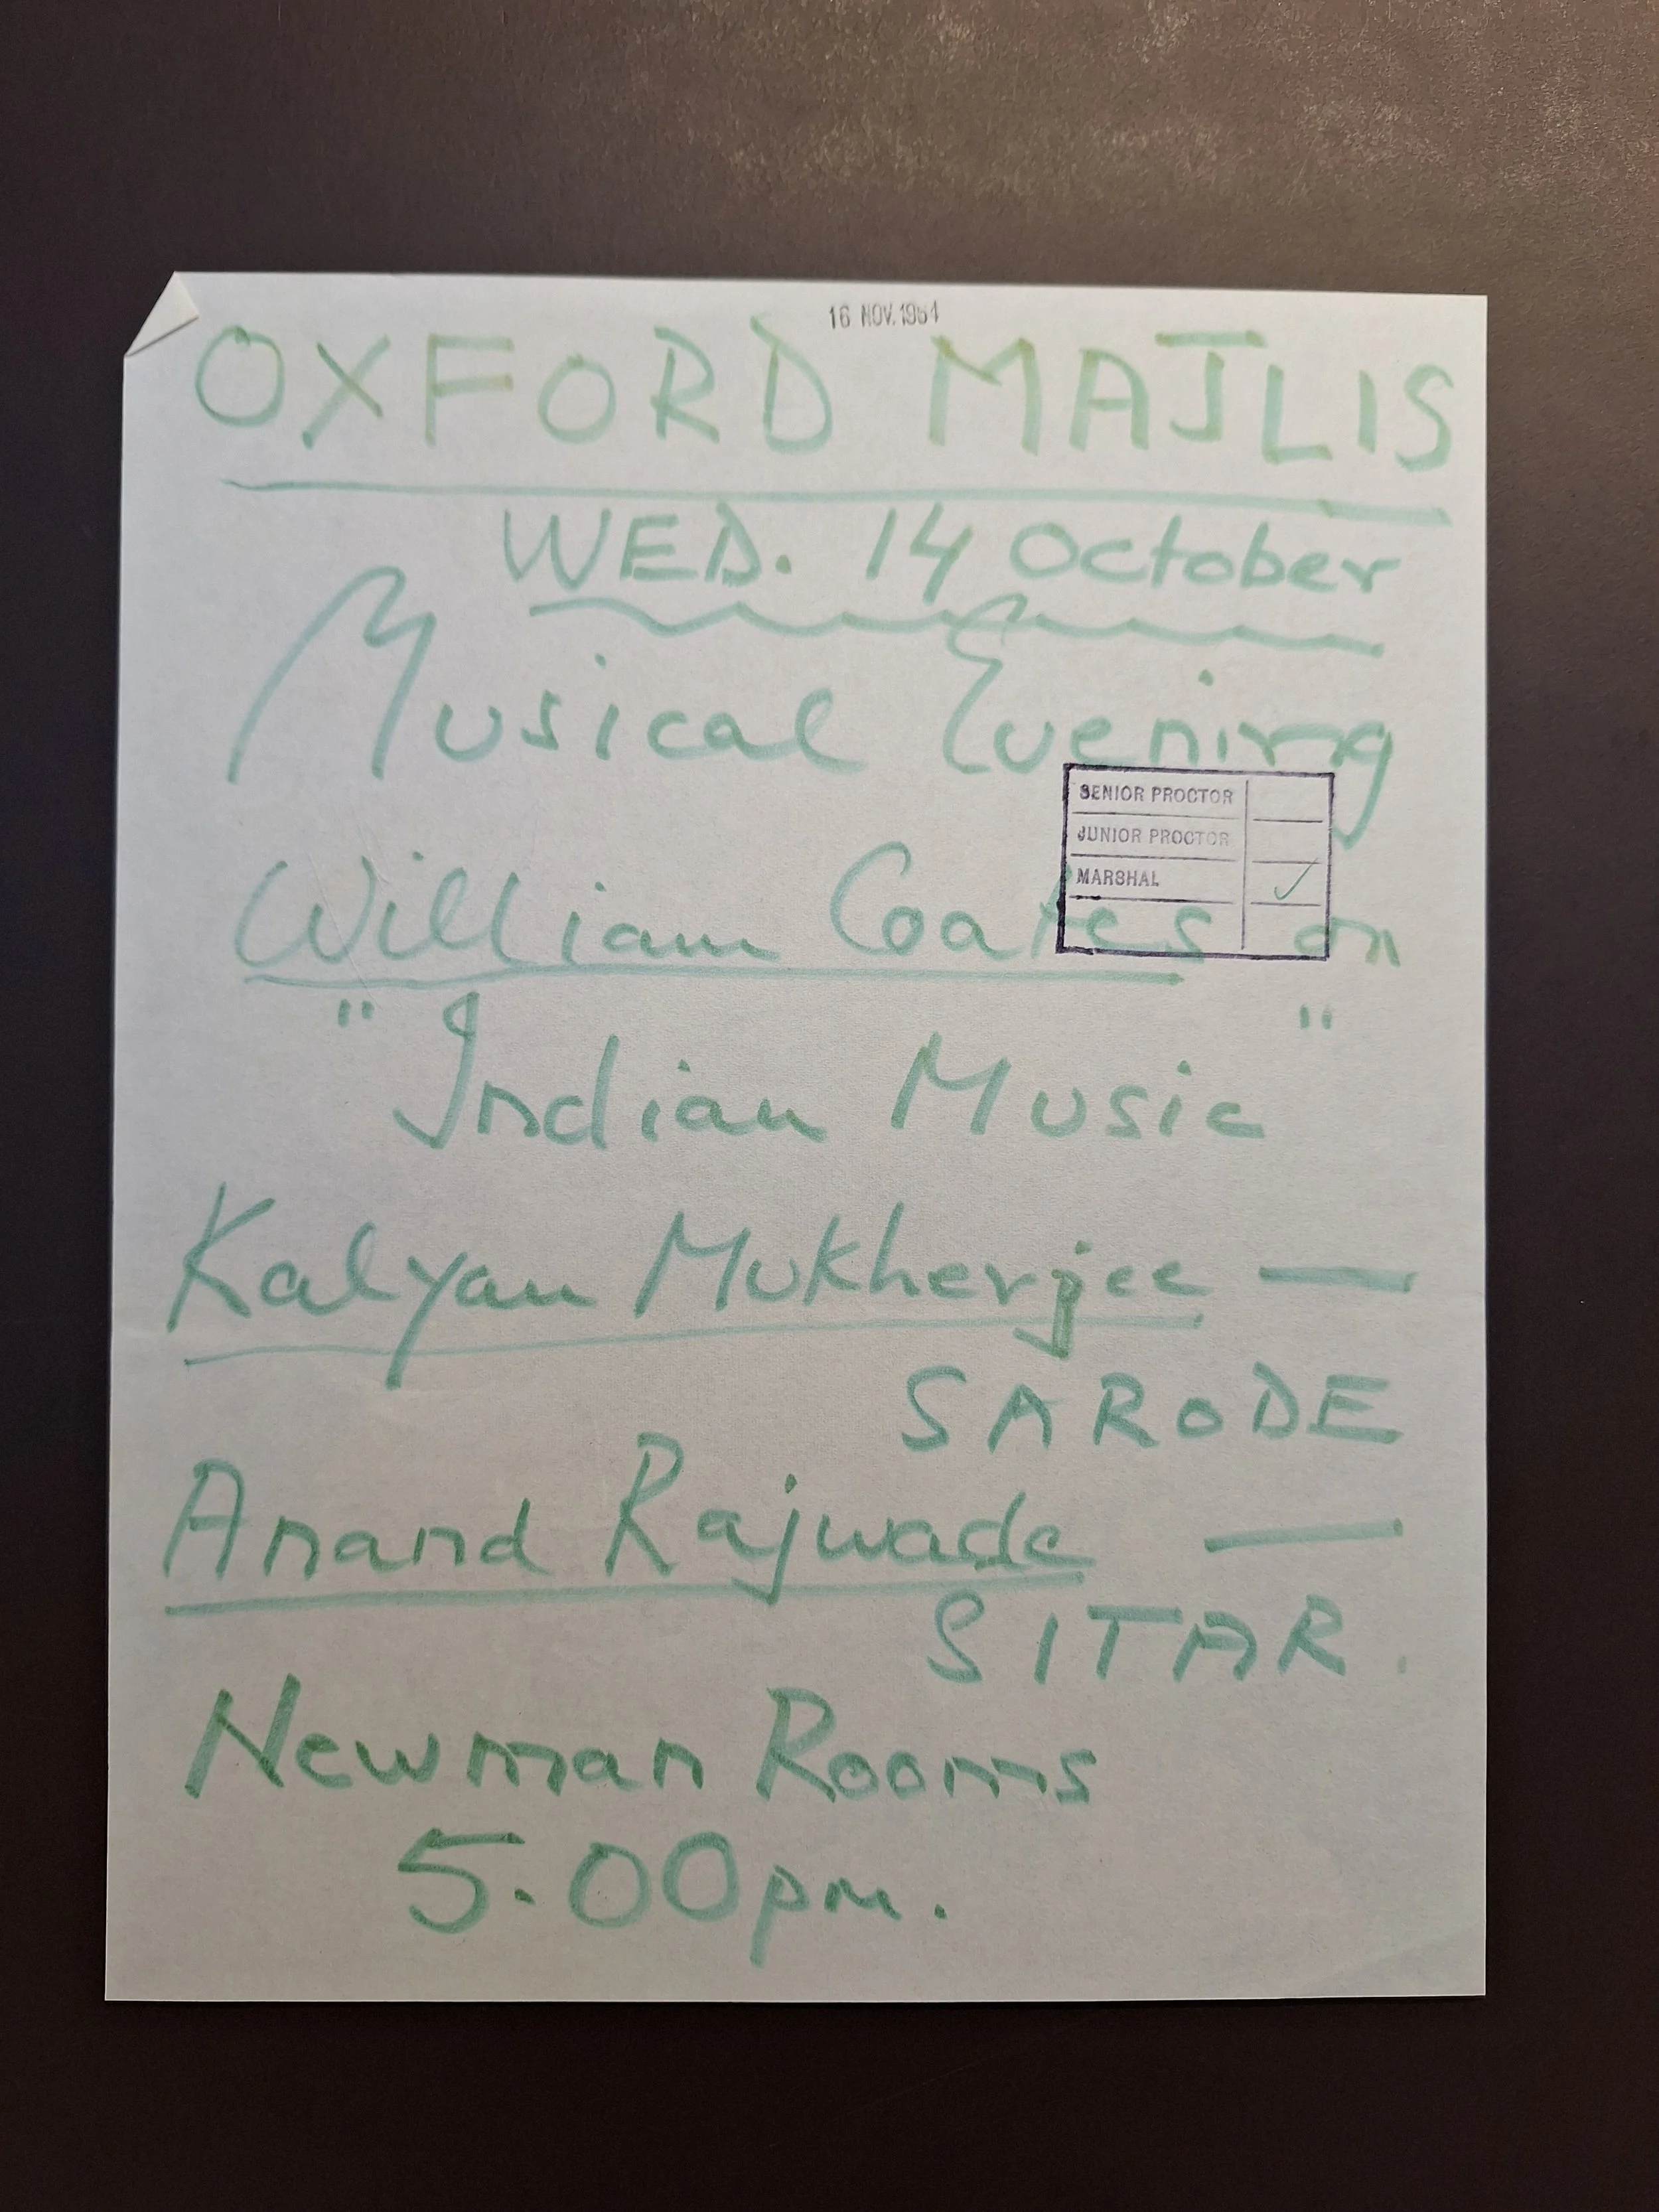 16 NOV. 1964
OXFORD MAJLIS
WED. 14 October
Musical Evening
SENIOR PROCTOR
JUNIOR PROCTOR
MARSHAL ✓
William Coates on
"Indian Music"
Kalyan Mukherjee —
SARODE
Anand Rajwade —
SITAR.
Newman Rooms
5.00pm.